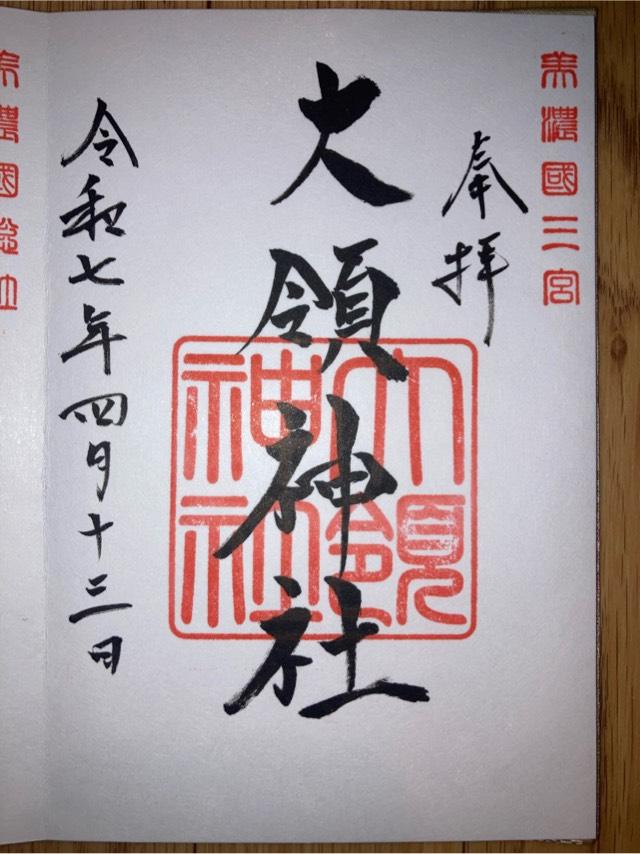 美濃國三宮
奉拝
大領神社
大領神社
令和七年四月十三日
美濃國総社